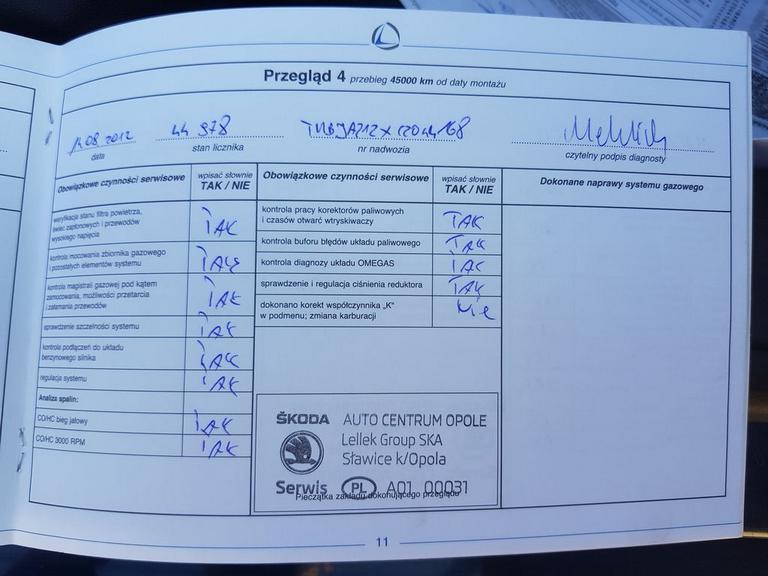 Przegląd 4 przebieg 45000 km od daty montażu
08 2012
44 978
data
stan licznika
nr nadwozia
czytelny podpis diagnosty
Obowiązkowe czynności serwisowe
wpisać słownie
TAK / NIE
weryfikacja stanu filtra powietrza,
świec zapłonowych i przewodów
wysokiego napięcia
TAK
kontrola mocowania zbiornika gazowego
i pozostałych elementów systemu
TAK
kontrola magistrali gazowej pod kątem
zamocowania, możliwości przetarcia
i załamania przewodów
TAK
sprawdzenie szczelności systemu
TAK
kontrola podłączeń do układu
benzynowego silnika
TAK
regulacja systemu
TAK
Analiza spalin:
CO/HC bieg jałowy
TAK
CO/HC 3000 RPM
TAK
Obowiązkowe czynności serwisowe
wpisać słownie
TAK / NIE
kontrola pracy korektorów paliwowych
i czasów otwarć wtryskiwaczy
TAK
kontrola buforu błędów układu paliwowego
TAK
kontrola diagnozy układu OMEGAS
TAK
sprawdzenie i regulacja ciśnienia reduktora
TAK
dokonano korekt współczynnika „K"
w podmenu; zmiana karburacji
Nie
ŠKODA AUTO CENTRUM OPOLE
Lellek Group SKA
Sławice k/Opola
Serwis PL A01 00031
Pieczątka zakładu dokonującego przeglądu
Dokonane naprawy systemu gazowego
11